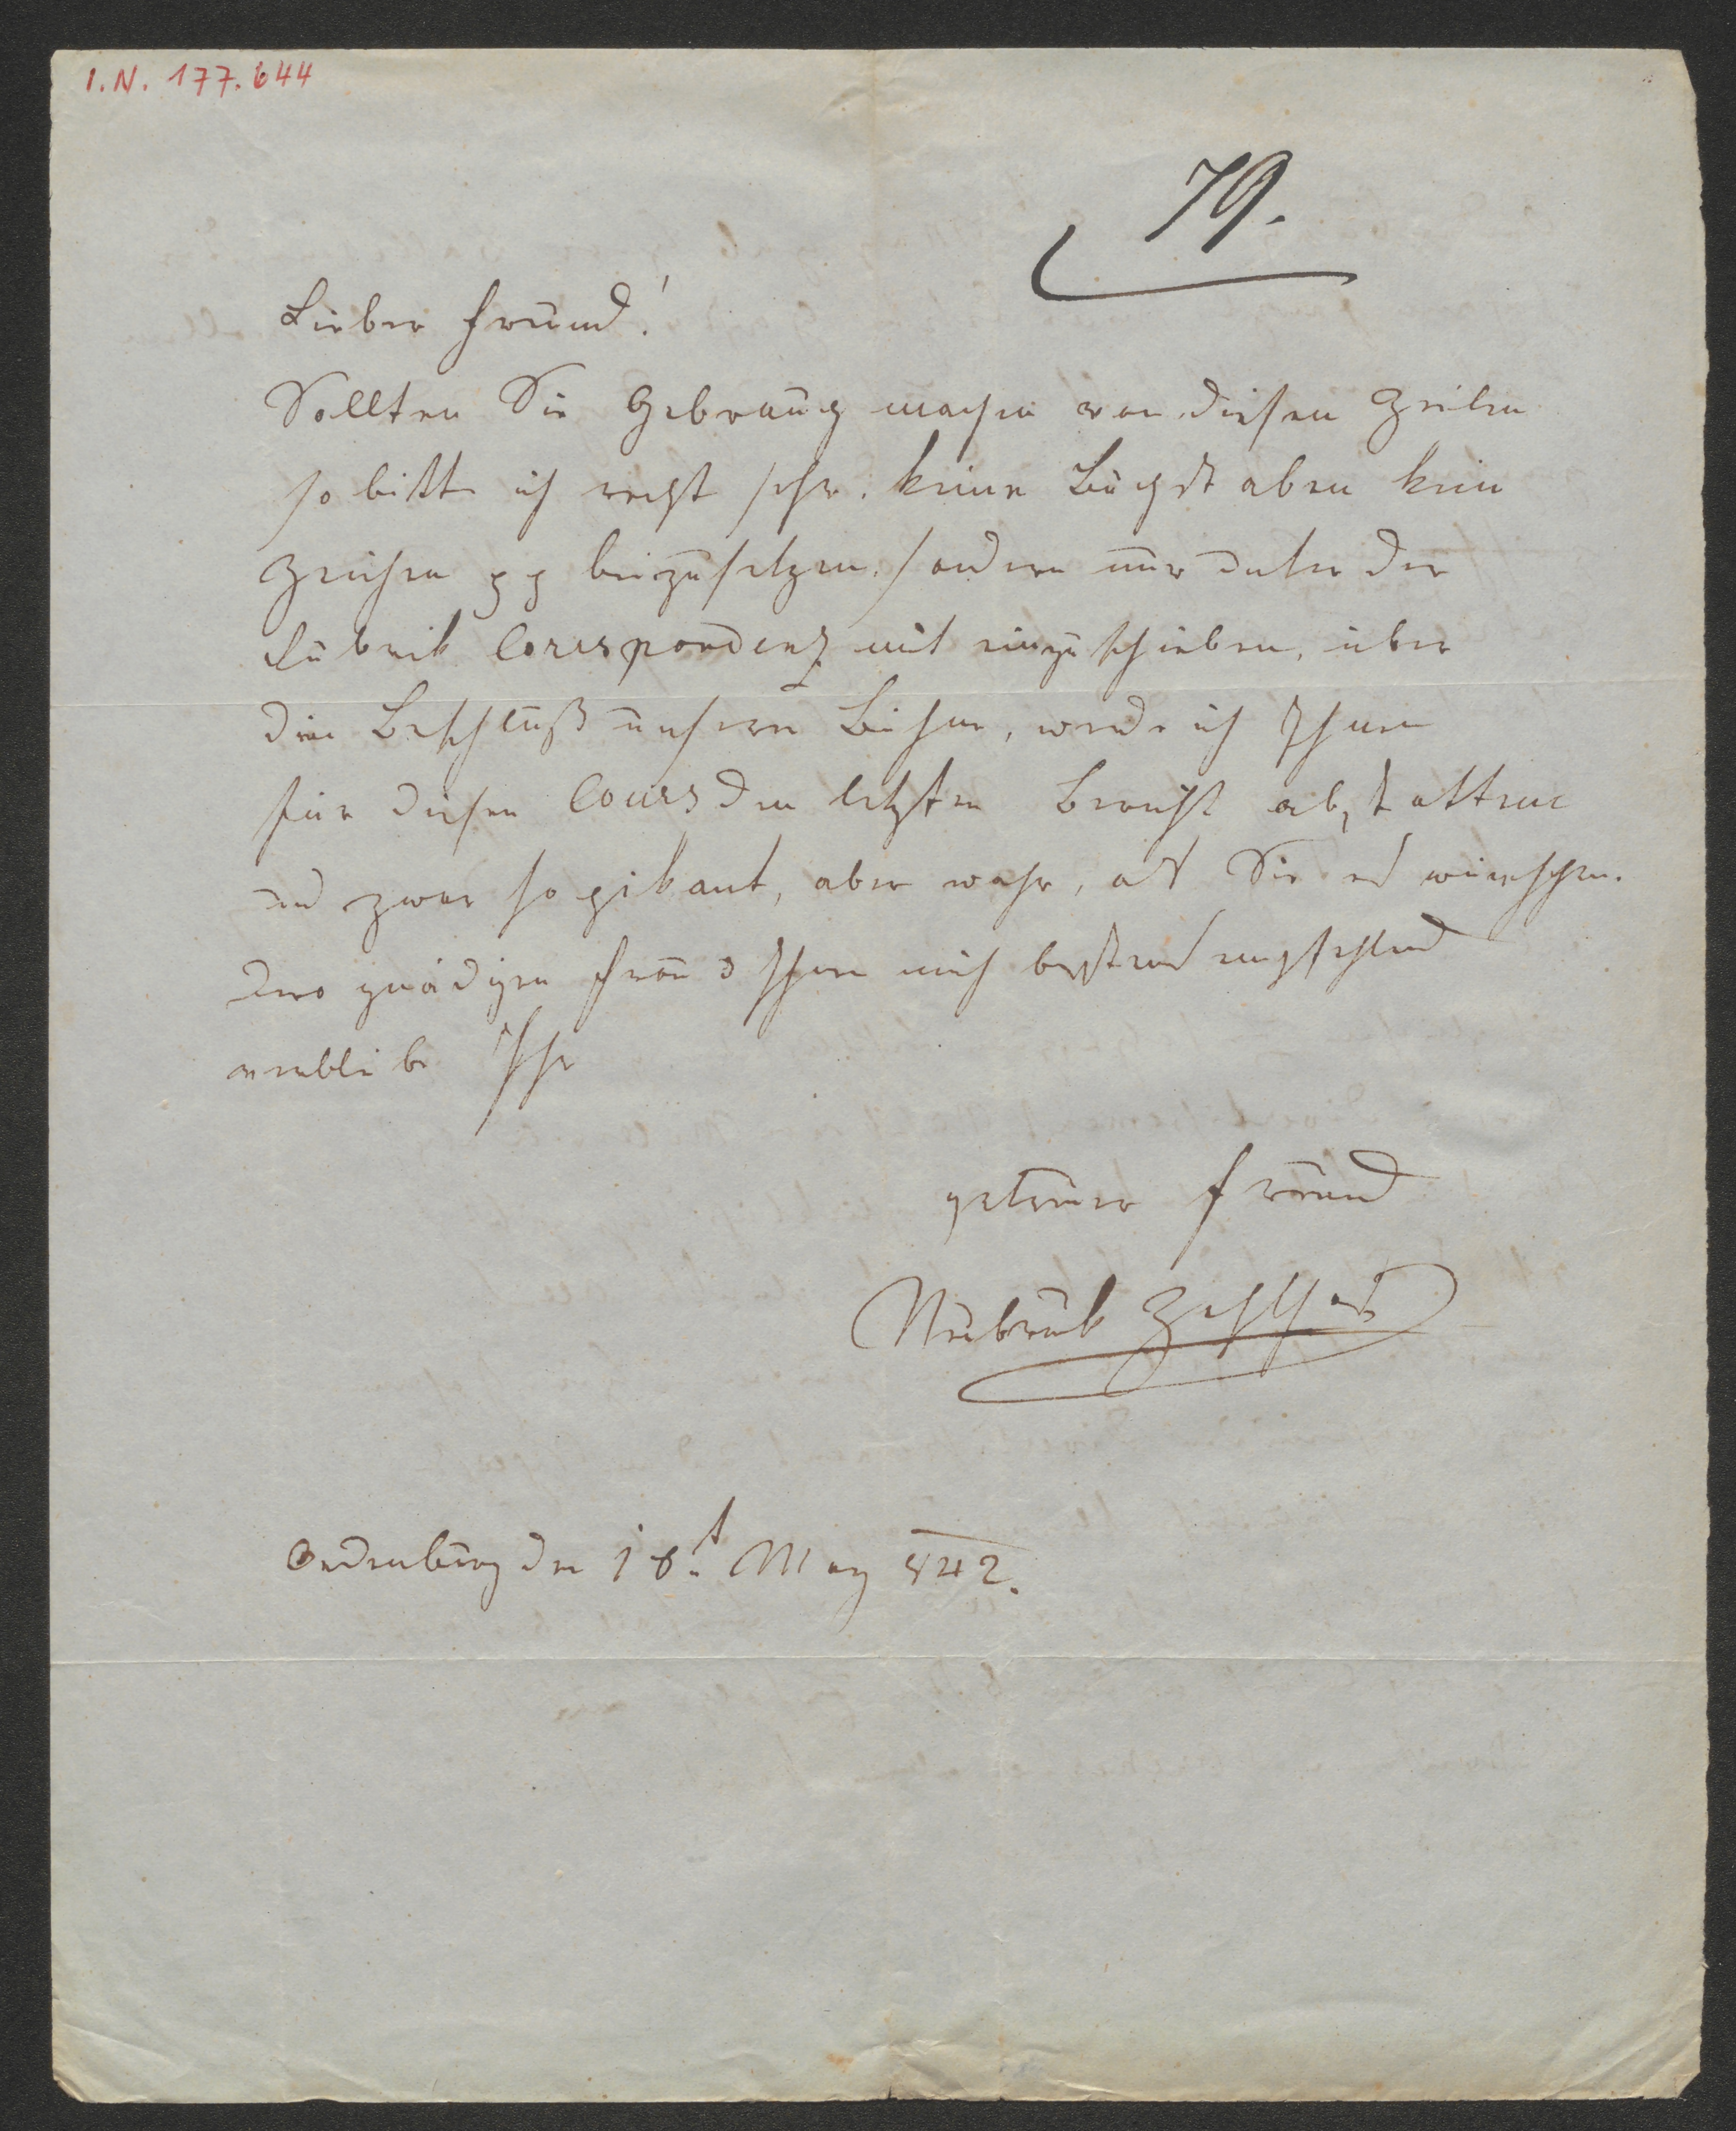 I.N. 177.644
79.
Lieber Freund!
Sollten Sie Gebrauch machen von diesen Zeilen
so bitte ich recht sehr, keine Buchstaben kein
Zeichen pp beizusetzen, sondern nur unter der
Rubrik Correspondenz mit einzuschieben, über
den Beschluß unserer Bühne, werde ich Ihnen
für diesen Cours den letzten Bericht abstatten
und zwar so pikant, aber wahr, als Sie es wünschen.
Dero gnädigen Frau & Ihnen mich bestens empfehlend
verbleibe Ihr
getreuer Freund
Oedenburg den 18t May 842.